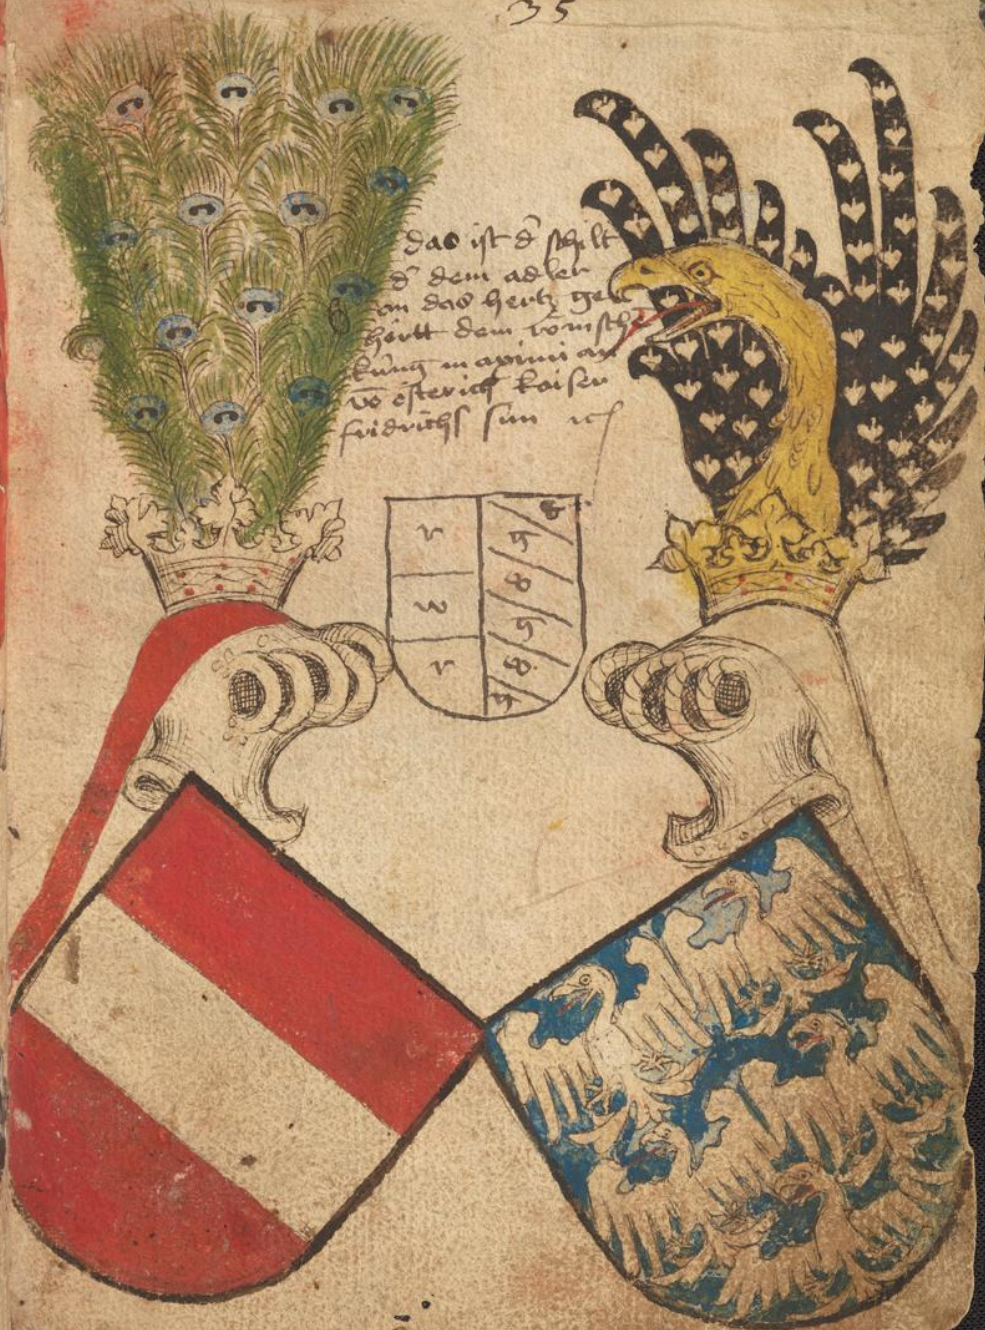 35
das ist d̄ schilt
d̄ dem adler
an das hertz ge
hörtt dem römisch
küng maximian
vō österich kaiser
fridrichs sun
r
g
b
w
g
b
r
g